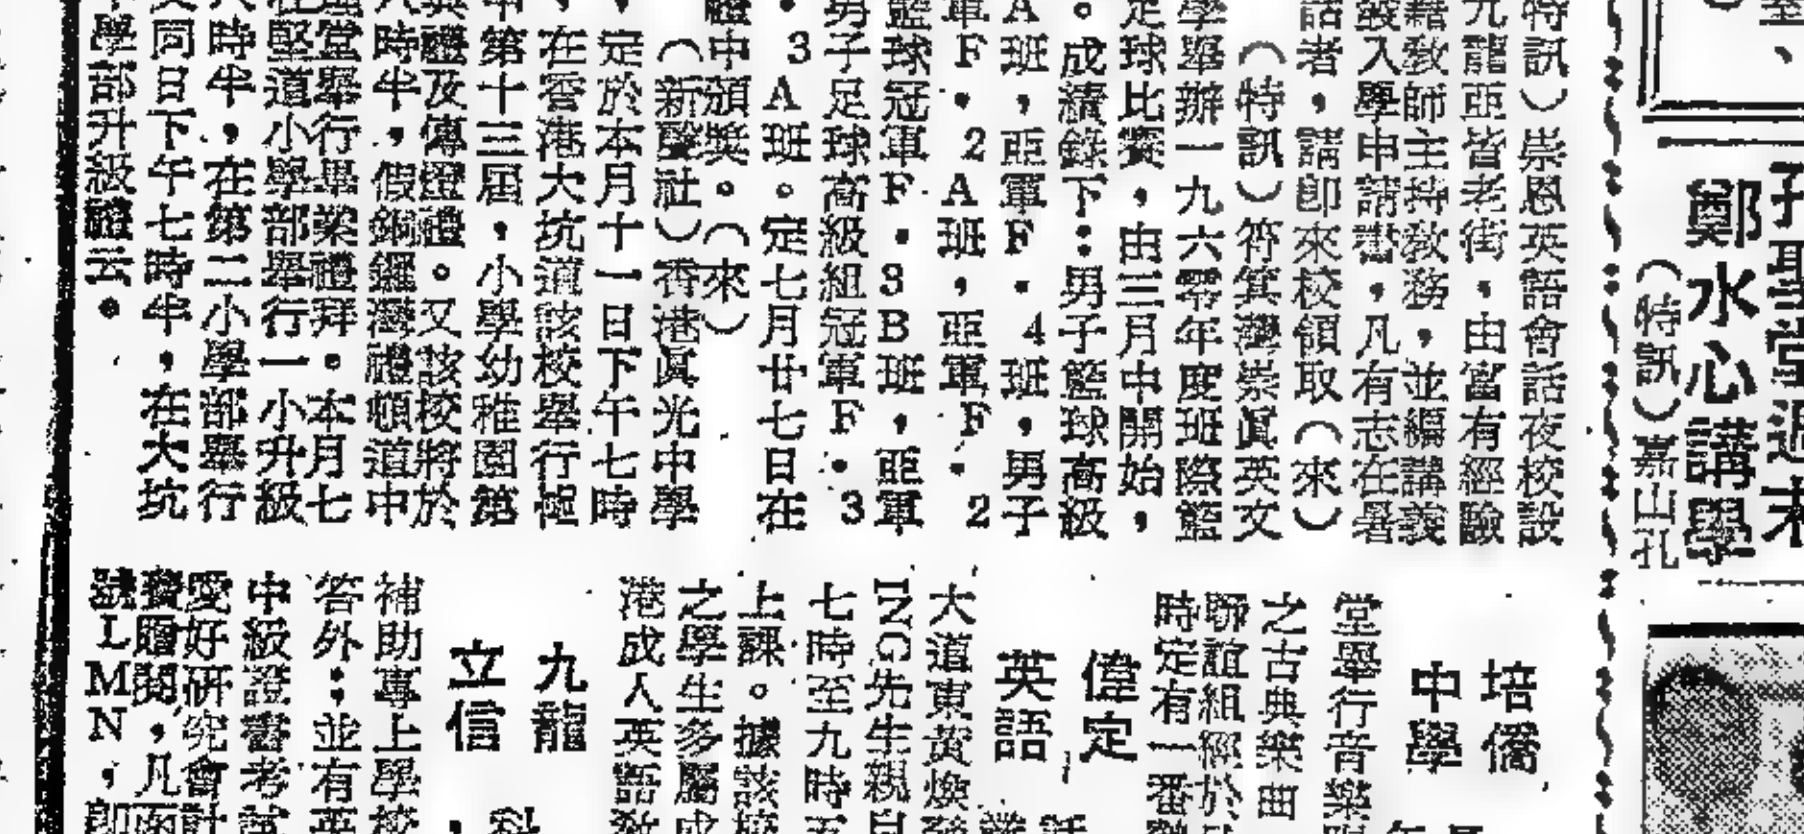 孔聖堂週末
鄭水心講學
（特訊）嘉山孔
特訊）崇恩英語會話夜校設
九龍亞皆老街，由富有經驗
籍教師主持教務，並編講義
發入學申請書，凡有志在暑
話者，請卽來校領取（來）
（特訊）筲箕灣崇眞英文
學舉辦一九六零年度班際籃
足球比賽，由三月中開始，
。成績錄下：男子籃球高級
A班，亞軍F．4班，男子
軍F．2A班，亞軍F．2
籃球冠軍F．3B班，亞軍
男子足球高級組冠軍F．3
．3A班。定七月廿七日在
禮中頒獎。（來）
（新聲社）香港眞光中學
，定於本月十一日下午七時
，在香港大坑道該校舉行極
中第十三屆，小學幼稚園第
典禮及傳燈禮。又該校將於
八時半，假銅鑼灣禮頓道中
堂舉行畢業禮拜。本月七
在堅道小學部舉行一小升級
八時半，在第二小學部舉行
又同日下午七時半，在大坑
小學部升級禮云。
培僑
中學
堂舉行音樂
之古典樂曲
聯誼組經於
時定有一番
偉定
英語
大道東黃煥
ING先生親自
七時至九時五
上課。據該校
之學生多屬成
港成人英語教
九龍
立信
補助專上學校
答外；並有英
中級證書考試
愛好研究會計
贈閱，凡函
LMN，卽